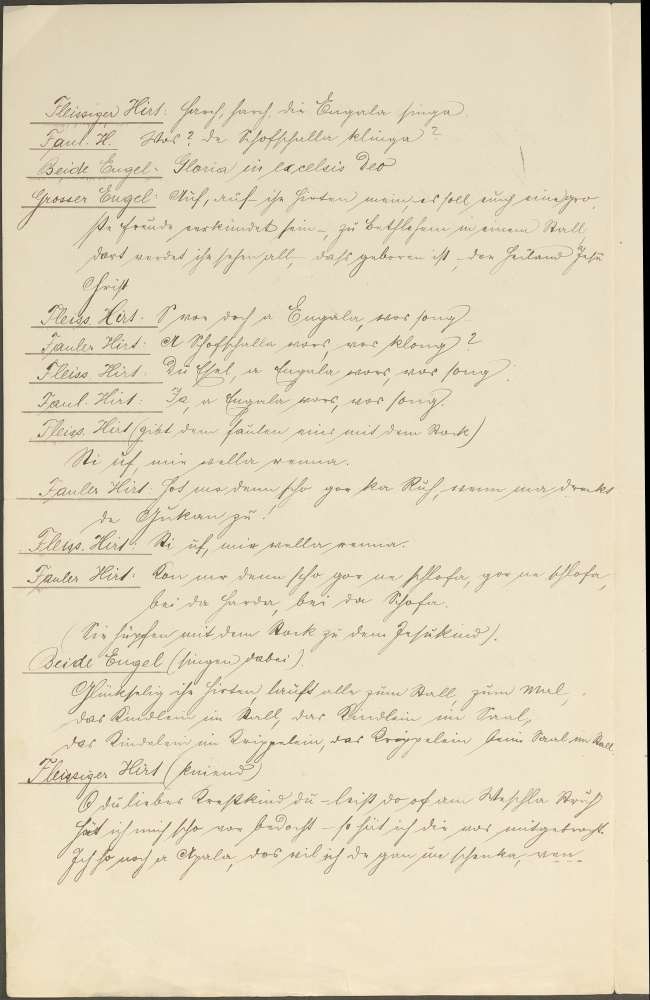 Fleissiger Hirt: Harch, harch, die Engala singa.
Faul. H. Wos? de Schofschalla klinga?
Beide Engel: Gloria in excelsis Deo
Grosser Engel: Auf, auf ihr Hirten mein es soll euch eine gro
ße Freude verkündet sein, zu Bethlehem in einem Stall
dort werdet ihr sehen all, daß geboren ist der Heiland Jesu
Christ
Fleiss. Hirt: S wor doch a Engala, wos song
Fauler Hirt: A Schofschalla wors, wos klong?
Fleiss. Hirt: Du Esel, a Engala wors, wos song.
Faul. Hirt: Ja, a Engala wors, wos song.
Fleiss. Hirt (gibt dem Faulen eins mit dem Stock)
Sti uf, mir wella renna.
Fauler Hirt: Hot ma denn scho gor ka Ruh, wenn ma druckt
de Gukan zu!
Fleiss. Hirt: Sti uf, mir wella renna.
Fauler Hirt: Kon mr denn scho gor ne schlofa, gor ne schlofa,
bei da Harda, bei da Schofa.
(Sie hüpfen mit dem Stock zu dem Jesukind).
Beide Engel (singen dabei).
Glückselig ihr Hirten, lauft alle zum Stall, zum Mal,
das Kindlein im Stall, das Kindlein im Saal,
das Kindelein im Krippelein, das Krippelein Saal im Stall.
Fleissiger Hirt (kniend)
O du liebes Krestkind du leist do of am Weschla Struh
Hät ich mich scho vor bedocht so hät ich dir wos mitgebrocht.
Ich ho noch a Apala, dos wil ich dr gan un schenka, wen-